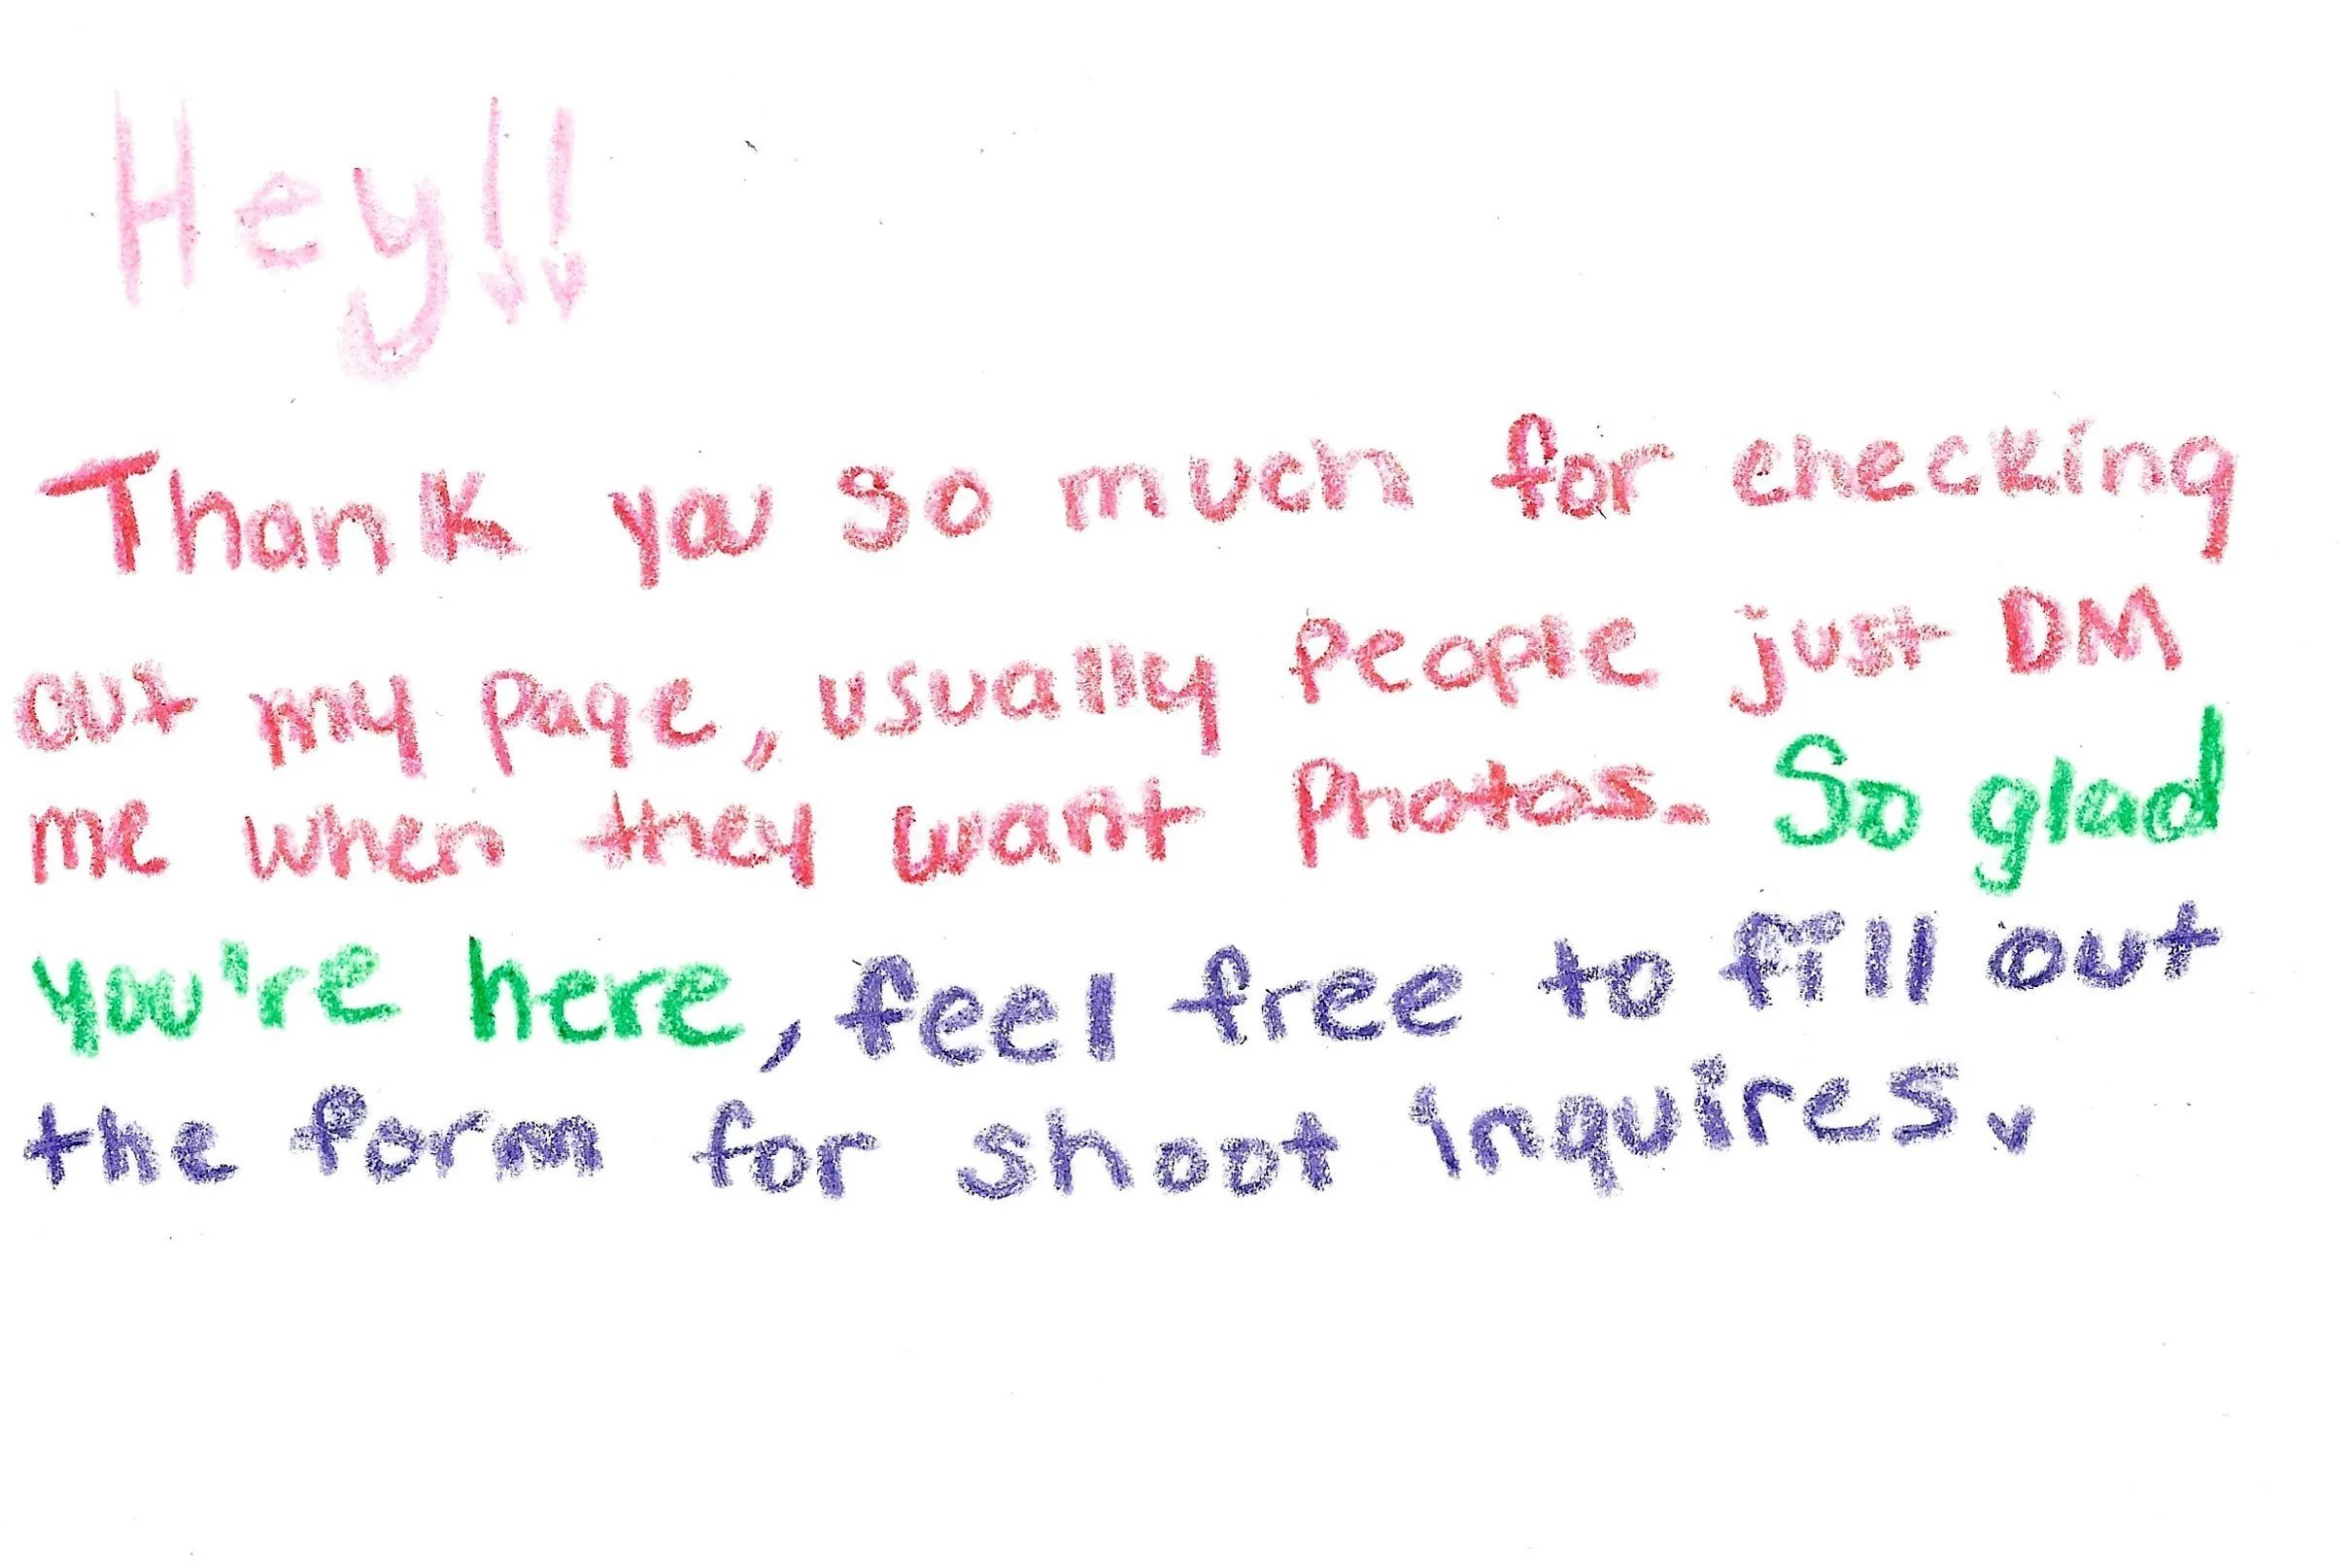 Hey!!
Thank you so much for checking
out my page, usually people just DM
me when they want photos. So glad
you're here, feel free to fill out
the form for shoot inquires.